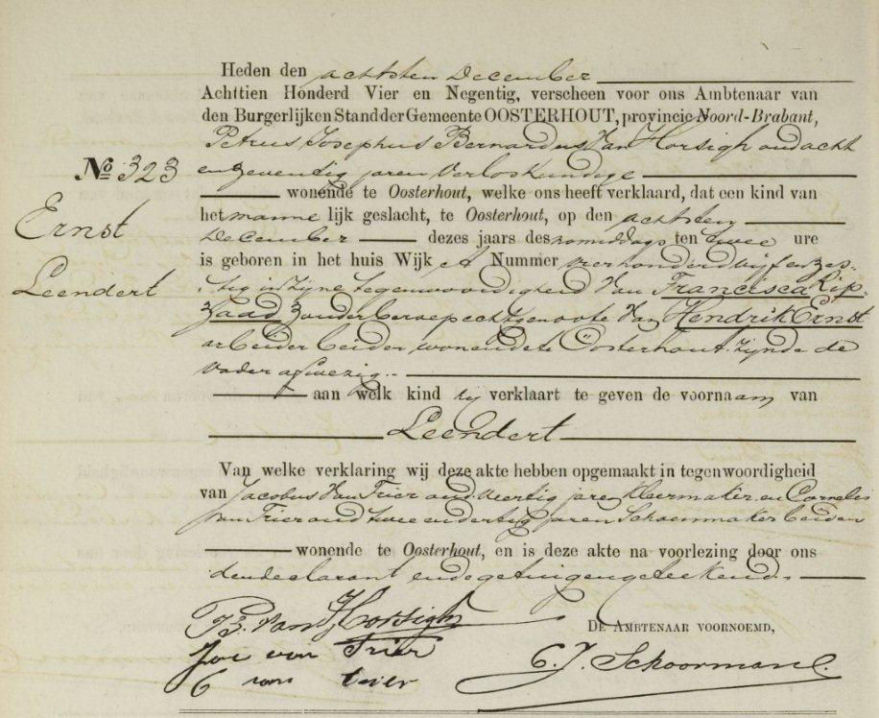 Heden den achtsten December
Achttien Honderd Vier en Negentig, verscheen voor ons Ambtenaar van
den Burgerlijken Stand der Gemeente OOSTERHOUT, provincie Noord-Brabant,
Petrus Josephus Bernardus Van Horsigh oud acht
No 323
en zeventig jaren Verloskundige
wonende te Oosterhout, welke ons heeft verklaard, dat een kind van
het manne lijk geslacht, te Oosterhout, op den achtsten
Ernst
December dezes jaars des namiddags ten twee ure
is geboren in het huis Wijk A Nummer vierhonderd vijf en zes-
Leendert
tig in zijne tegenwoordigheid van Francisca Rip-
zaad zonder beroep echtgenoote van Hendrik Ernst
arbeider beiden wonende te Oosterhout zijnde de
vader afwezig.
aan welk kind hij verklaart te geven de voornaam van
Leendert
Van welke verklaring wij deze akte hebben opgemaakt in tegenwoordigheid
van Jacobus Van Trier oud veertig jaren Kleermaker en Cornelis
van Trier oud twee en dertig jaren Schoenmaker beiden
wonende te Oosterhout, en is deze akte na voorlezing door ons
den declarant en de getuigen geteekend.
PB. van Horsigh
DE AMBTENAAR VOORNOEMD,
Jac van Trier
C. J. Schoormans
C van trier